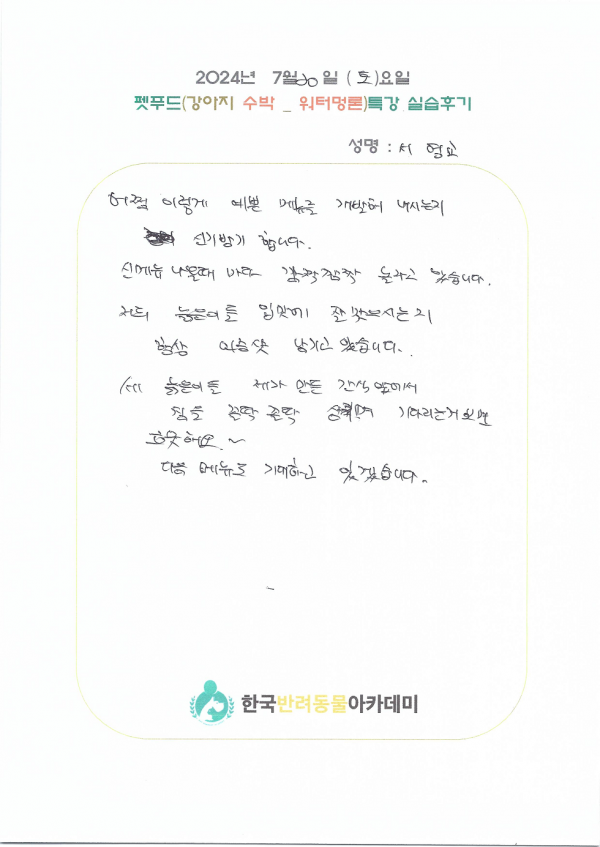 2024년 7월 20일 (토)요일
펫푸드(강아지 수박 _ 워터멍론)특강 실습후기
성명 : 서
어쩜 이렇게 예쁜 메뉴를 개발해 내시는지
신기방기 합니다.
신메뉴 나올때 마다 깜짝깜짝 놀라고 있습니다.
저희 늙은이들 입맛에 잘 맞으시는지
항상 비음샷 남기고 있습니다.
늙은이들 제가 만든 간식 앞에서
침을 꼴딱 꼴딱 기다리는거 보면
흐뭇해요.~
다음 메뉴도 기대하고 있겠습니다.
한국반려동물아카데미